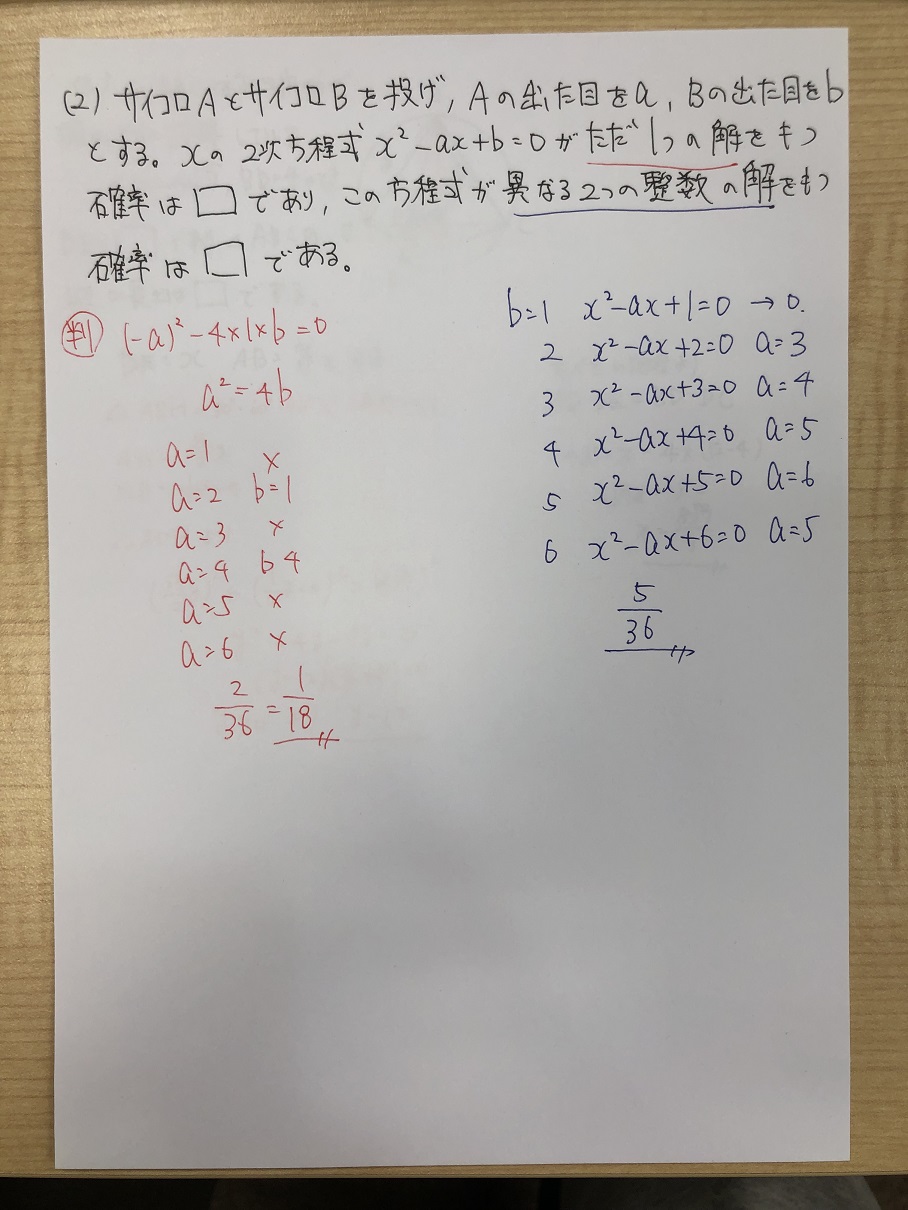 (2) サイコロAとサイコロBを投げ, Aの出た目をa, Bの出た目をb
とする。xの2次方程式 x²-ax+b=0がただ1つの解をもつ
確率は□であり, この方程式が異なる2つの整数の解をもつ
確率は□である。
判 (-a)²-4×1×b=0
a²=4b
a=1 ×
a=2 b=1
a=3 ×
a=4 b4
a=5 ×
a=6 ×
2/36=1/18
b=1 x²-ax+1=0 → 0.
2 x²-ax+2=0 a=3
3 x²-ax+3=0 a=4
4 x²-ax+4=0 a=5
5 x²-ax+5=0 a=6
6 x²-ax+6=0 a=5
5/36